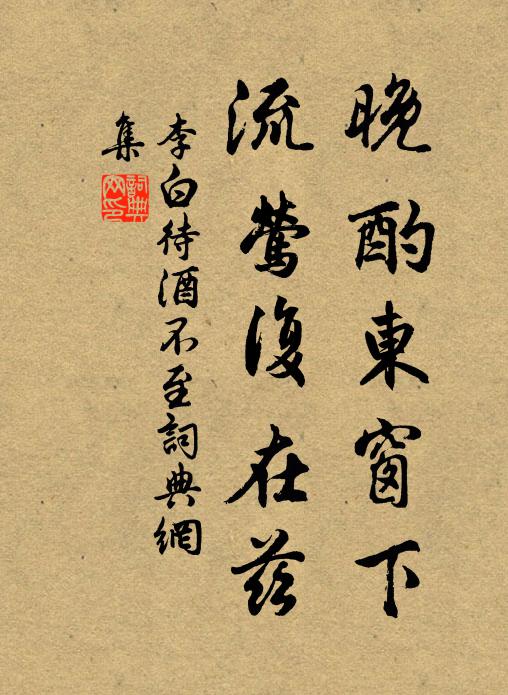 晚酌東窗下
流鶯復在茲
李白待酒不至詞典網
集
詞典网印